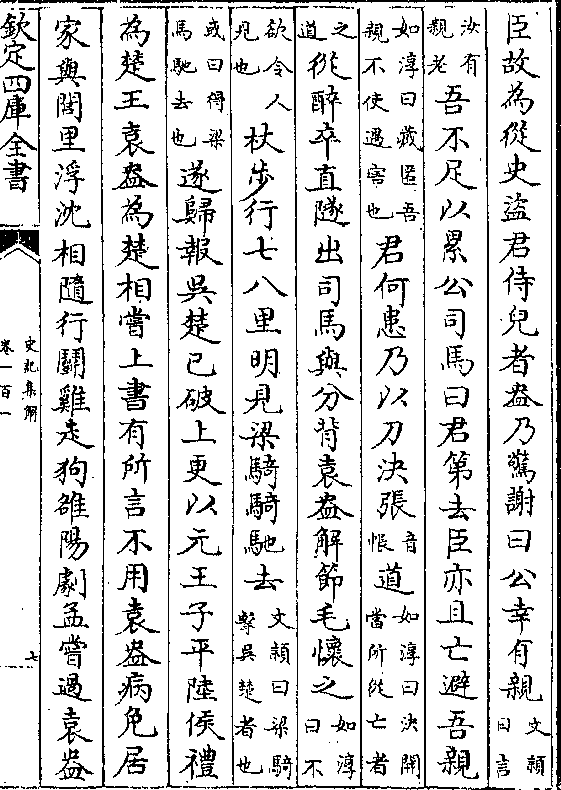 臣故為從史盜君侍兒者盎乃驚謝曰公幸有親文頴曰言
汝有親老吾不足以累公司馬曰君第去臣亦且亡避吾親
如淳曰藏匿吾親不使遇害也君何患乃以刀決張音帳道如淳曰決開當所從亡者
之道從醉卒直隧出司馬與分背袁盎解節毛懷之如淳曰不
欲令人見也杖步行七八里明見梁騎騎馳去文頴曰梁騎擊吳楚者也
或曰得梁馬馳去也遂歸報吳楚已破上更以元王子平陸侯禮
為楚王袁盎為楚相嘗上書有所言不用袁盎病免居
家與閭里浮沈相隨行鬭雞走狗雒陽劇孟嘗過袁盎
欽定四庫全書
史記集解
卷一百一
七